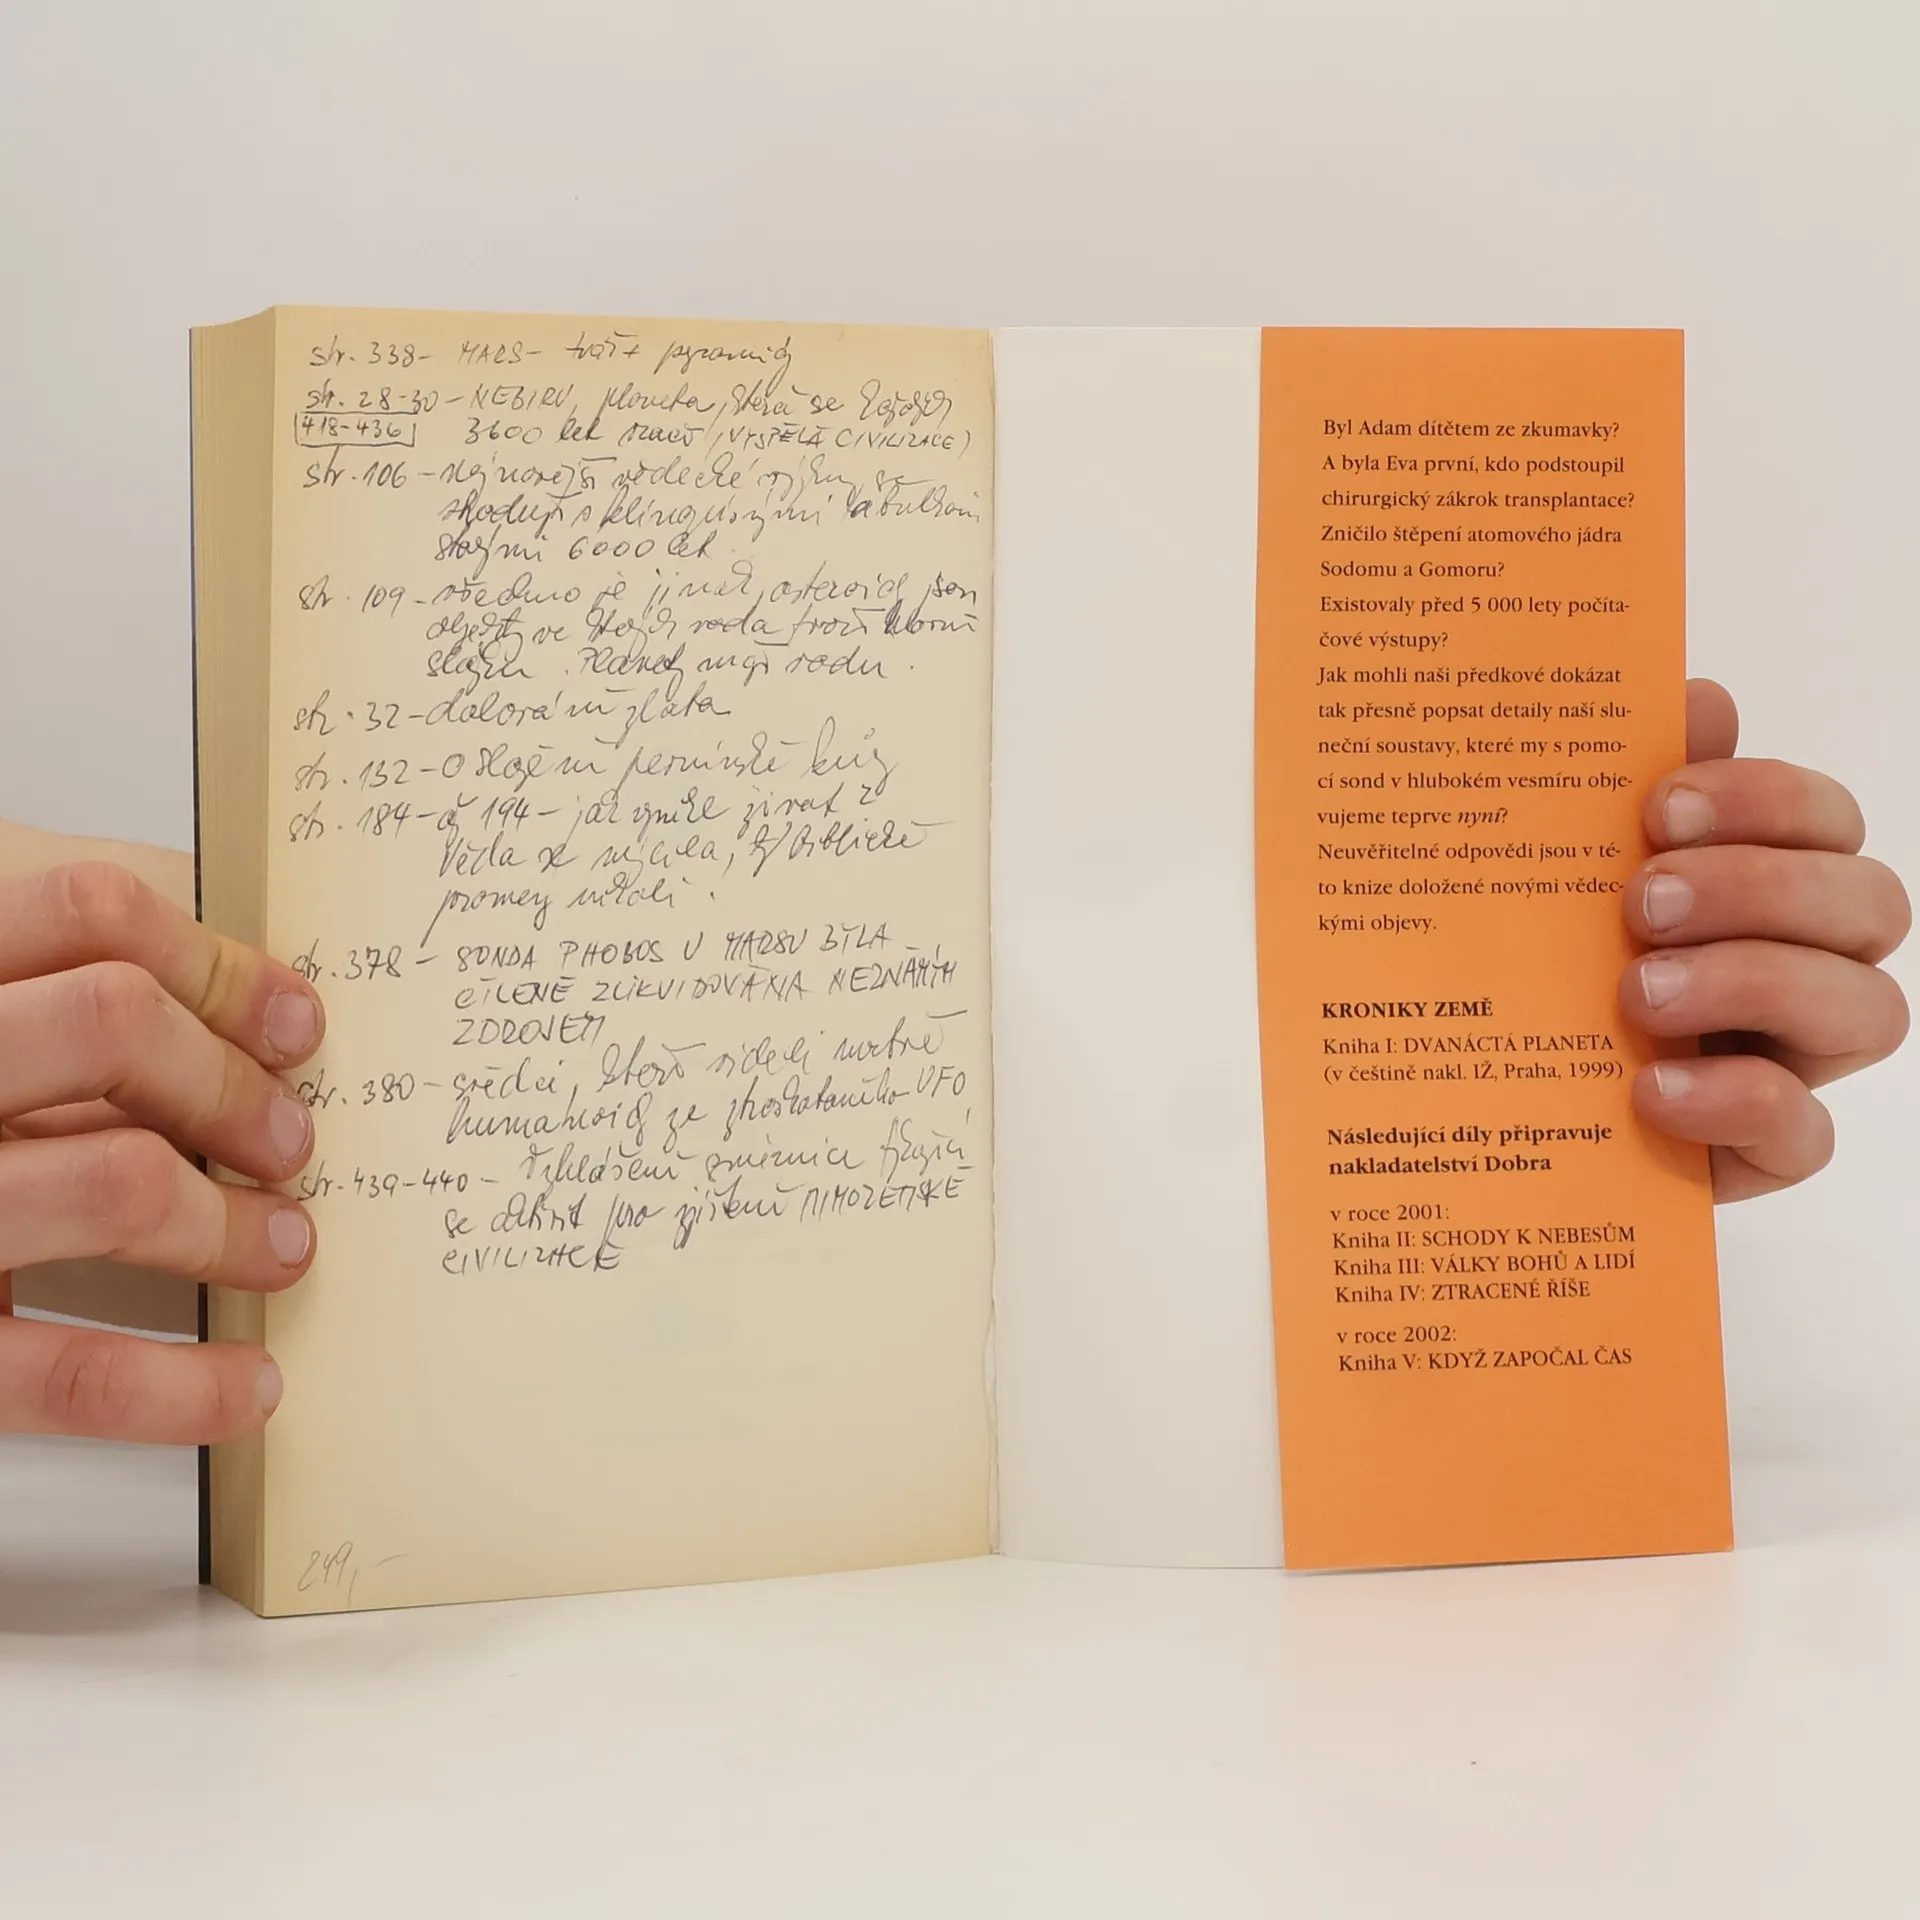 str. 338- MARS- tvář + pyramidy
str. 28-30 - NEBIRU, planeta, která se každých
418-436 3600 let vrací (VYSPĚLÁ CIVILIZACE)
str. 106 - nejnovější vědecké výzkumy se
shodují s tabulkami
starými 6000 let
str. 109 - všechno je jinak, asteroidy jsou
objekty ve kterých voda tvoří hlavní
složku. Planety mají vodu.
str. 32 - dolování zlata
str. 132 - O složení zemské kůry
str. 184 - až 194 - jak vznikl život?
Věda se mýlila, Biblické
prameny nikoli.
str. 378 - SONDA PHOBOS U MARSU BYLA
CÍLENĚ ZLIKVIDOVÁNA NEZNÁMÝM
ZDROJEM
str. 380 - svědci, kteří viděli mrtvé
humanoidy ze ztroskotaného UFO
str. 439-440 - Vyhlášení směrnice týkající
se aktivit pro zjištění MIMOZEMSKÉ
CIVILIZACE
249,-
Byl Adam dítětem ze zkumavky?
A byla Eva první, kdo podstoupil
chirurgický zákrok transplantace?
Zničilo štěpení atomového jádra
Sodomu a Gomoru?
Existovaly před 5 000 lety počíta-
čové výstupy?
Jak mohli naši předkové dokázat
tak přesně popsat detaily naší slu-
neční soustavy, které my s pomo-
cí sond v hlubokém vesmíru obje-
vujeme teprve nyní?
Neuvěřitelné odpovědi jsou v té-
to knize doložené novými vědec-
kými objevy.
KRONIKY ZEMĚ
Kniha I: DVANÁCTÁ PLANETA
(v češtině nakl. IŽ, Praha, 1999)
Následující díly připravuje
nakladatelství Dobra
v roce 2001:
Kniha II: SCHODY K NEBESŮM
Kniha III: VÁLKY BOHŮ A LIDÍ
Kniha IV: ZTRACENÉ ŘÍŠE
v roce 2002:
Kniha V: KDYŽ ZAPOČAL ČAS